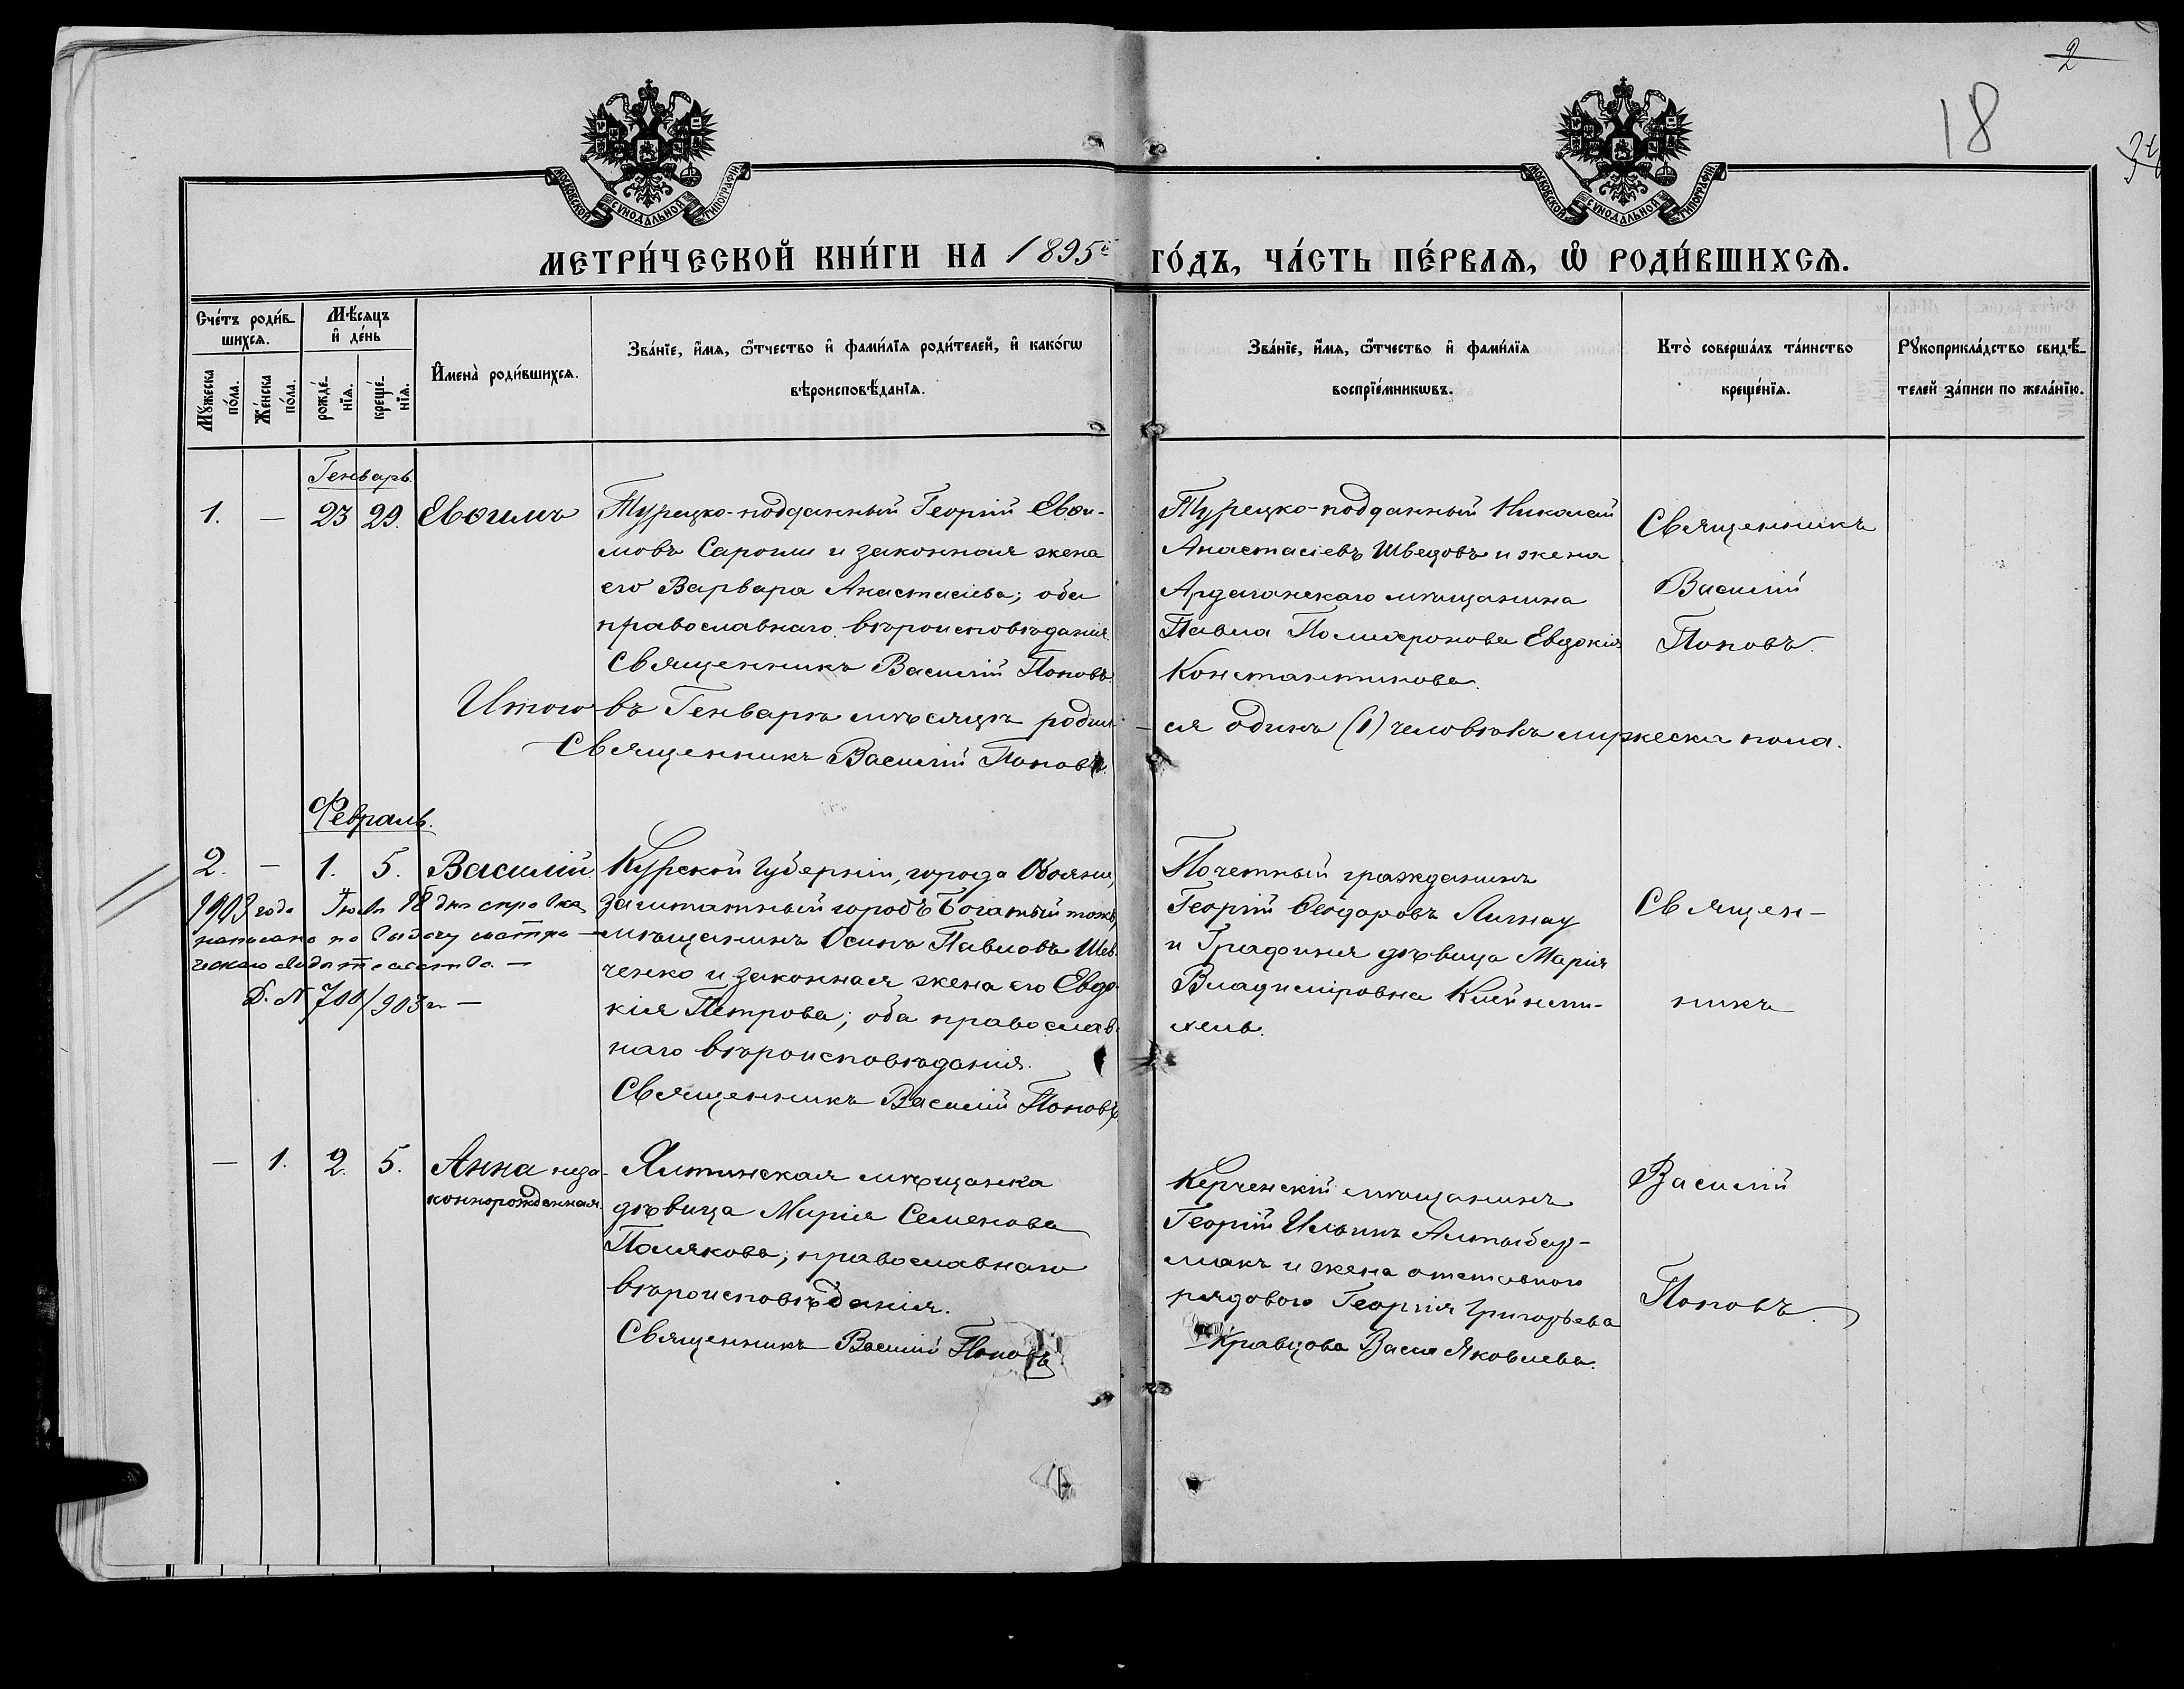 2
18
МОСКОВСКОЙ СѴНОДАЛЬНОЙ ТИПОГРАФІИ
МОСКОВСКОЙ СѴНОДАЛЬНОЙ ТИПОГРАФІИ
МЕТРИ́ЧЕСКОЙ КНИ́ГИ НА 1895й ГО́ДЪ, ЧА́СТЬ ПЕ́РВАѦ, Ѡ҆ РОДИ́ВШИХСѦ.
Сче́тъ роди́в-
шихсѧ.
Мѣ́сѧцъ
и҆ де́нь
Мꙋ́жеска
по́ла.
Же́нска
по́ла.
рожде́-
нїѧ.
креще́-
нїѧ.
И҆мена̀ роди́вшихсѧ.
Зва́нїе, и҆́мѧ, ѻ҆́тчество и҆ фами́лїѧ роди́телей, и҆ како́гѡ
вѣроисповѣ́данїѧ.
Зва́нїе, и҆́мѧ, ѻ҆́тчество и҆ фами́лїѧ
воспрїе́мникѡвъ.
Кто̀ соверша́лъ та́инство
креще́нїѧ.
Рꙋкоприкла́дство свидѣ́-
телей за́писи по жела́нїю.
Генварь.
1. — 23 29. Евѳимъ
Турецко-подданный Георгій Евѳи-
мовъ Сароши и законная жена
его Варвара Анастасіева; оба
православнаго вѣроисповѣданія
Священникъ Василій Поповъ.
Турецко-подданный Николай
Анастасіевъ Шведовъ и жена
Ардаганскаго мѣщанина
Павла Полихронова Евдокія
Константинова.
Священникъ
Василій
Поповъ.
Итого въ Генварѣ мѣсяцѣ родил-ся одинъ (1) человѣкъ мужеска пола.
Священникъ Василій Поповъ.
Февраль.
2. — 1. 5. Василій.
1903 года Іюля 18 дня справка
написано на выдачу метри-
ческаго свидѣтельства. —
Д. N 700/903 г. —
Курской губерніи, города Обояни,
заштатный городъ Богатый тожъ,
мѣщанинъ Осипъ Павловъ Шев-
ченко и законная жена его Евдо-
кія Петрова; оба православ-
наго вѣроисповѣданія.
Священникъ Василій Поповъ
Почетный гражданинъ
Георгій Ѳеодоровъ Лигнау
и Графиня дѣвица Марія
Владиміровна Клейнми-
хель.
Священ-
никъ
— 1. 2. 5. Анна неза-
коннорожденная.
Ялтинская мѣщанка
дѣвица Марія Семенова
Полякова; православнаго
вѣроисповѣданія.
Священникъ Василій Поповъ
Керченскій мѣщанинъ
Георгій Ильинъ Алтыбар-
макъ и жена отставного
рядового Георгія Григорьева
Кравцова Васса Яковлева.
Василій
Поповъ.